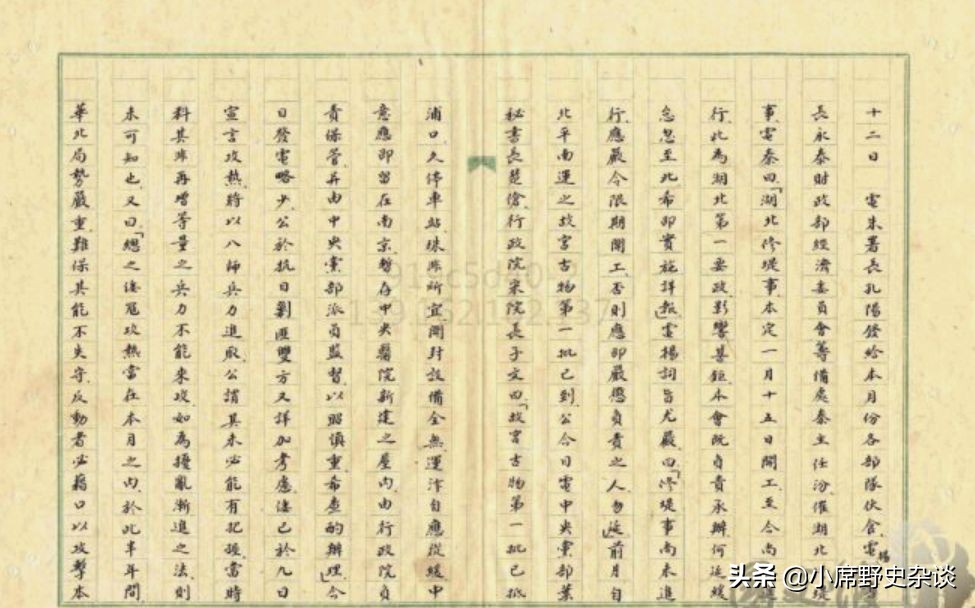 十二日　電朱署長孔陽發給本月份各部隊伙食電楊
長永泰財政部經濟委員會籌備處秦主任汾催湖北堤
事電秦曰「湖北修堤事本定一月十五日開工至今尚
行此為湖北第一要政影響甚鉅本會既負責承辦何延緩
怠忽至此希即實施詳報」電楊詞旨尤嚴曰「修堤事尚未進
行應嚴令限期開工否則應即嚴懲負責之人勿延」前月自
北平南運之故宮古物第一批已到公今日電中央黨部葉
秘書長楚傖行政院宋院長子文曰「故宮古物第一批已抵
浦口久停車站殊非所宜開封設備全無運汴自應從緩中
意應即留在南京暫存中央醫院新建之屋內由行政院負
責保管并由中央黨部派員監督以昭慎重希查酌辦理」公
日發電略少公於抗日剿匪雙方又詳加考慮倭已於九日
宣言攻熱將以八師兵力進取公謂其未必能有把握當時
料其非再增等量之兵力不能來攻如為擾亂漸進之法則
未可知也又曰「總之倭寇攻熱當在本月之內於此半年間
華北局勢嚴重難保其能不失守反動者必藉口以攻擊本
头条 @小席野史杂谈